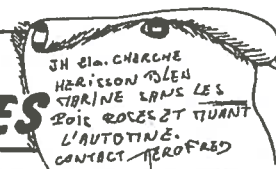 JH 21a. CHERCHE
HERISSON BLEU
MARINE SANS LES
POIS ROSES ET MUANT
L'AUTOMNE.
CONTACT AEROFRED
ES